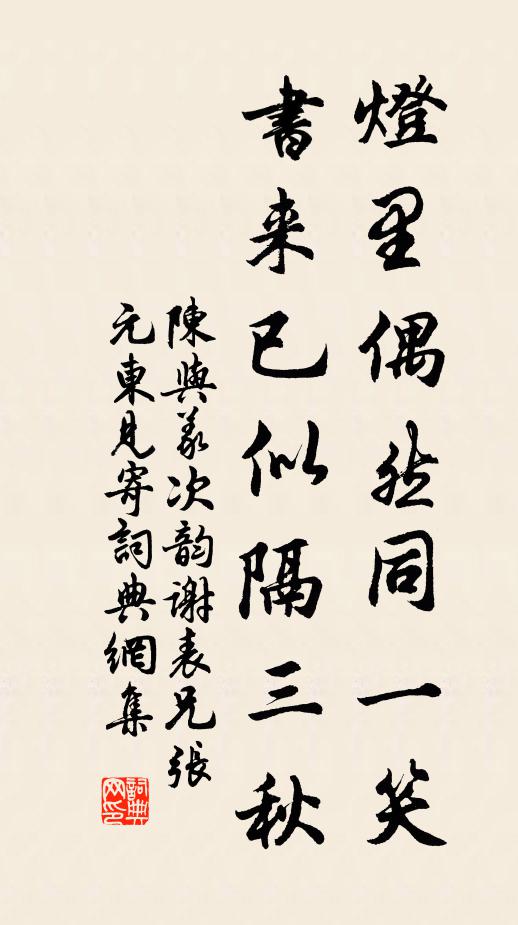 燈里偶然同一笑
書来已似隔三秋
陳與義次韵謝表兄張
元東見寄詞典網集
詞典
网印